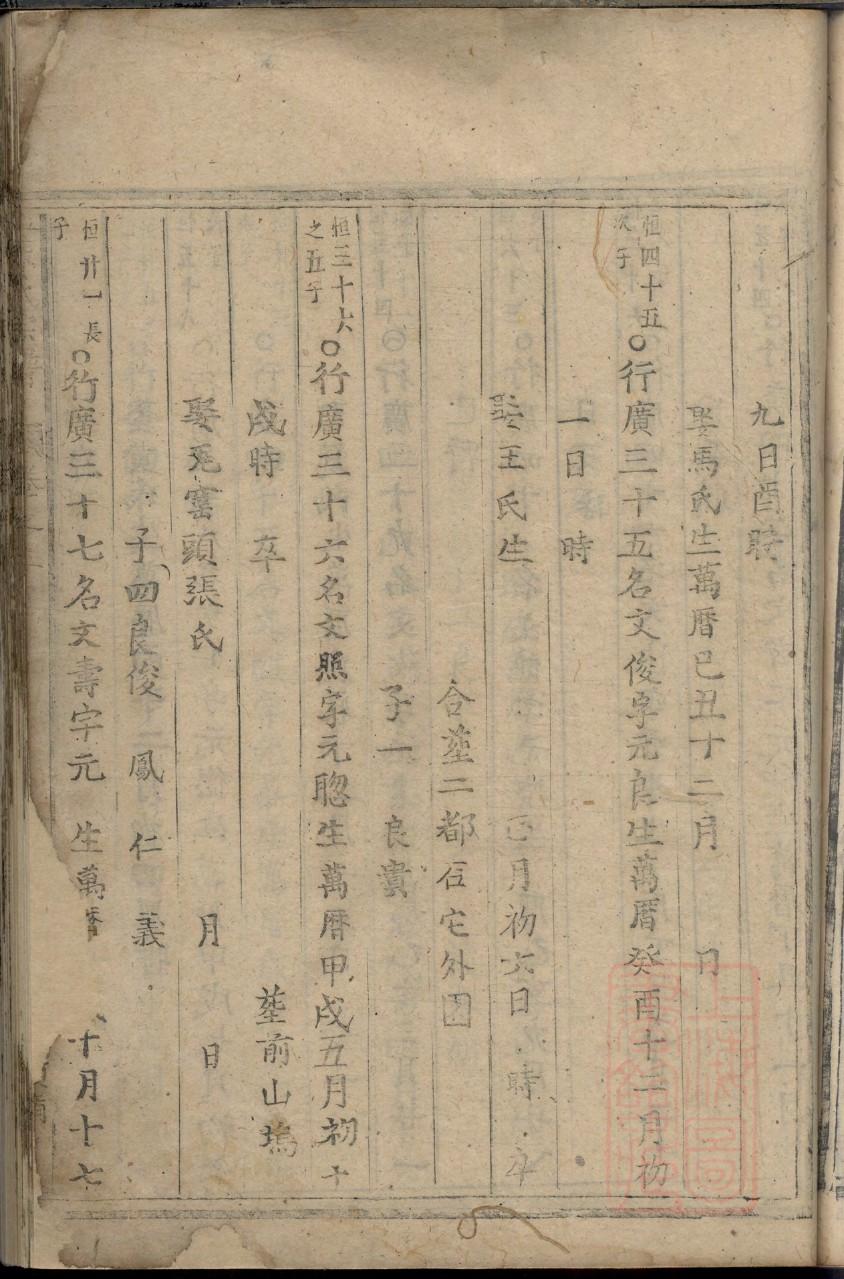 九日酉時
娶馬氏生萬曆己丑十二月 日
恒四十五次子○行廣三十五名文俊字元良生萬曆癸酉十二月初
一日 時
娶王氏生 正月初六日 時 卒
合塟二都石宅外园
子一 良貴
恒三十六之五子○行廣三十六名文照字元聰生萬曆甲戌五月初十
戌時 卒 塟前山塢
娶瓦窰頭張氏 月 日
子四良俊 鳳 仁 義
恒廿一長子○行廣三十七名文壽字元 生萬曆 十月十七